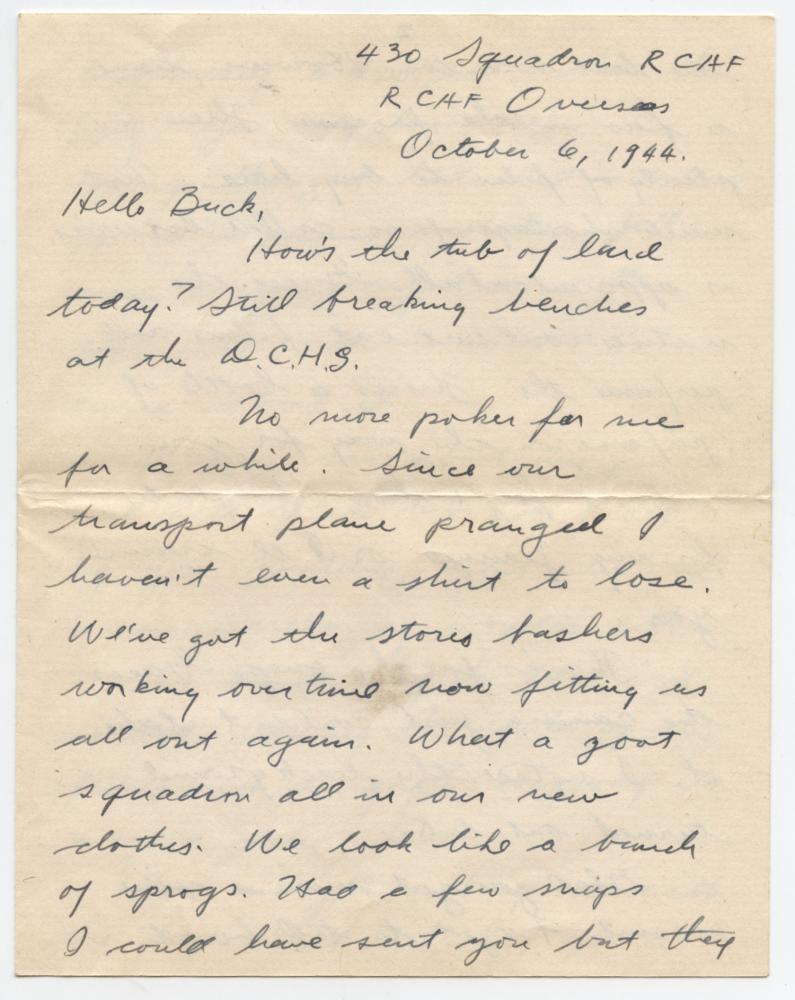 430 Squadron RCAF
RCAF Overseas
October 6, 1944.
Hello Buck,
How's the tub of lard
today? Still breaking benches
at the D.C.H.S.
No more poker for me
for a while. Since our
transport plane pranged I
haven't even a shirt to lose.
We've got the stores bashers
working overtime now fitting us
all out again. What a zoot
squadron all in our new
clothes. We look like a bunch
of sprogs. Had a few snaps
I could have sent you but they